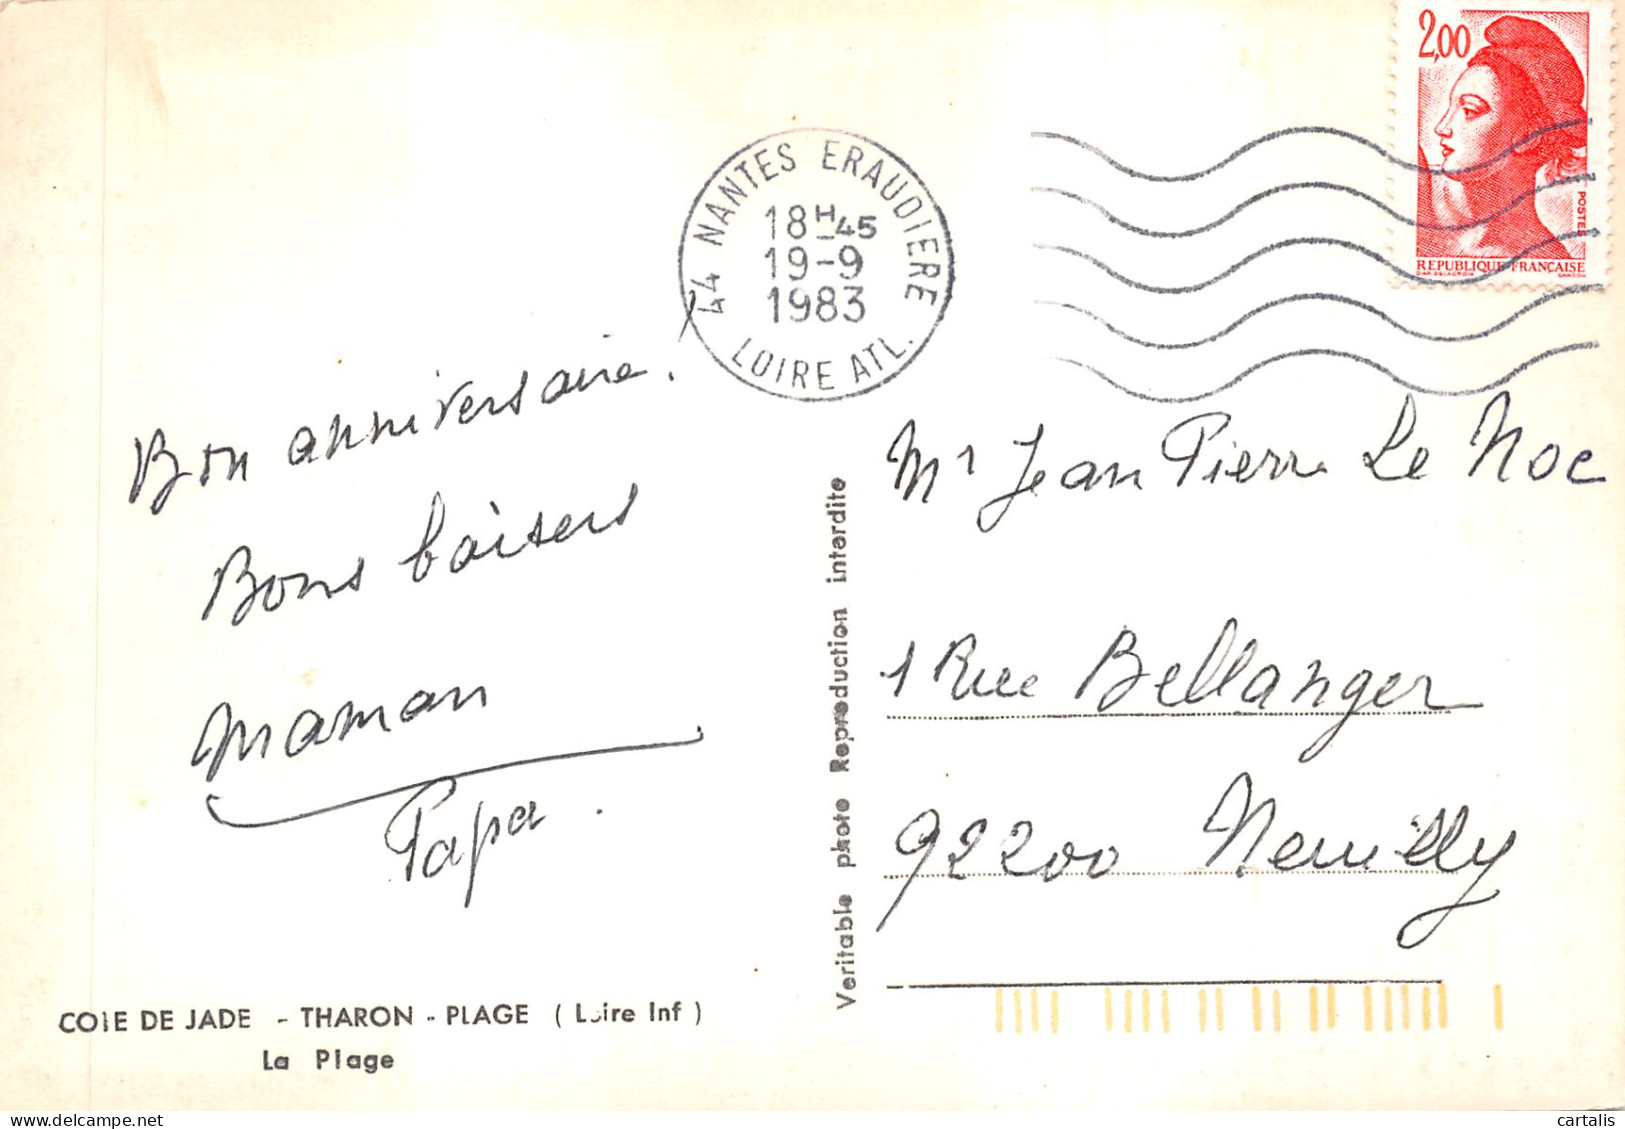 2,00
POSTES
REPUBLIQUE FRANÇAISE
D'AP. DELACROIX GANDON
44 NANTES ERAUDIERE
18H45
19-9
1983
LOIRE ATL.
Bon anniversaire.
Bons baisers
Maman
Papa.
Mr Jean Pierre Le Noc
1 Rue Bellanger
92200 Neuilly
Veritable photo Reproduction interdite
COTE DE JADE - THARON - PLAGE ( Loire Inf )
La Plage
cartalis